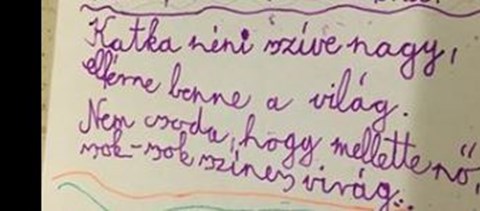 Katka néni szíve nagy,
elférne benne a világ.
Nem csoda, hogy mellette nő,
sok-sok színes virág.